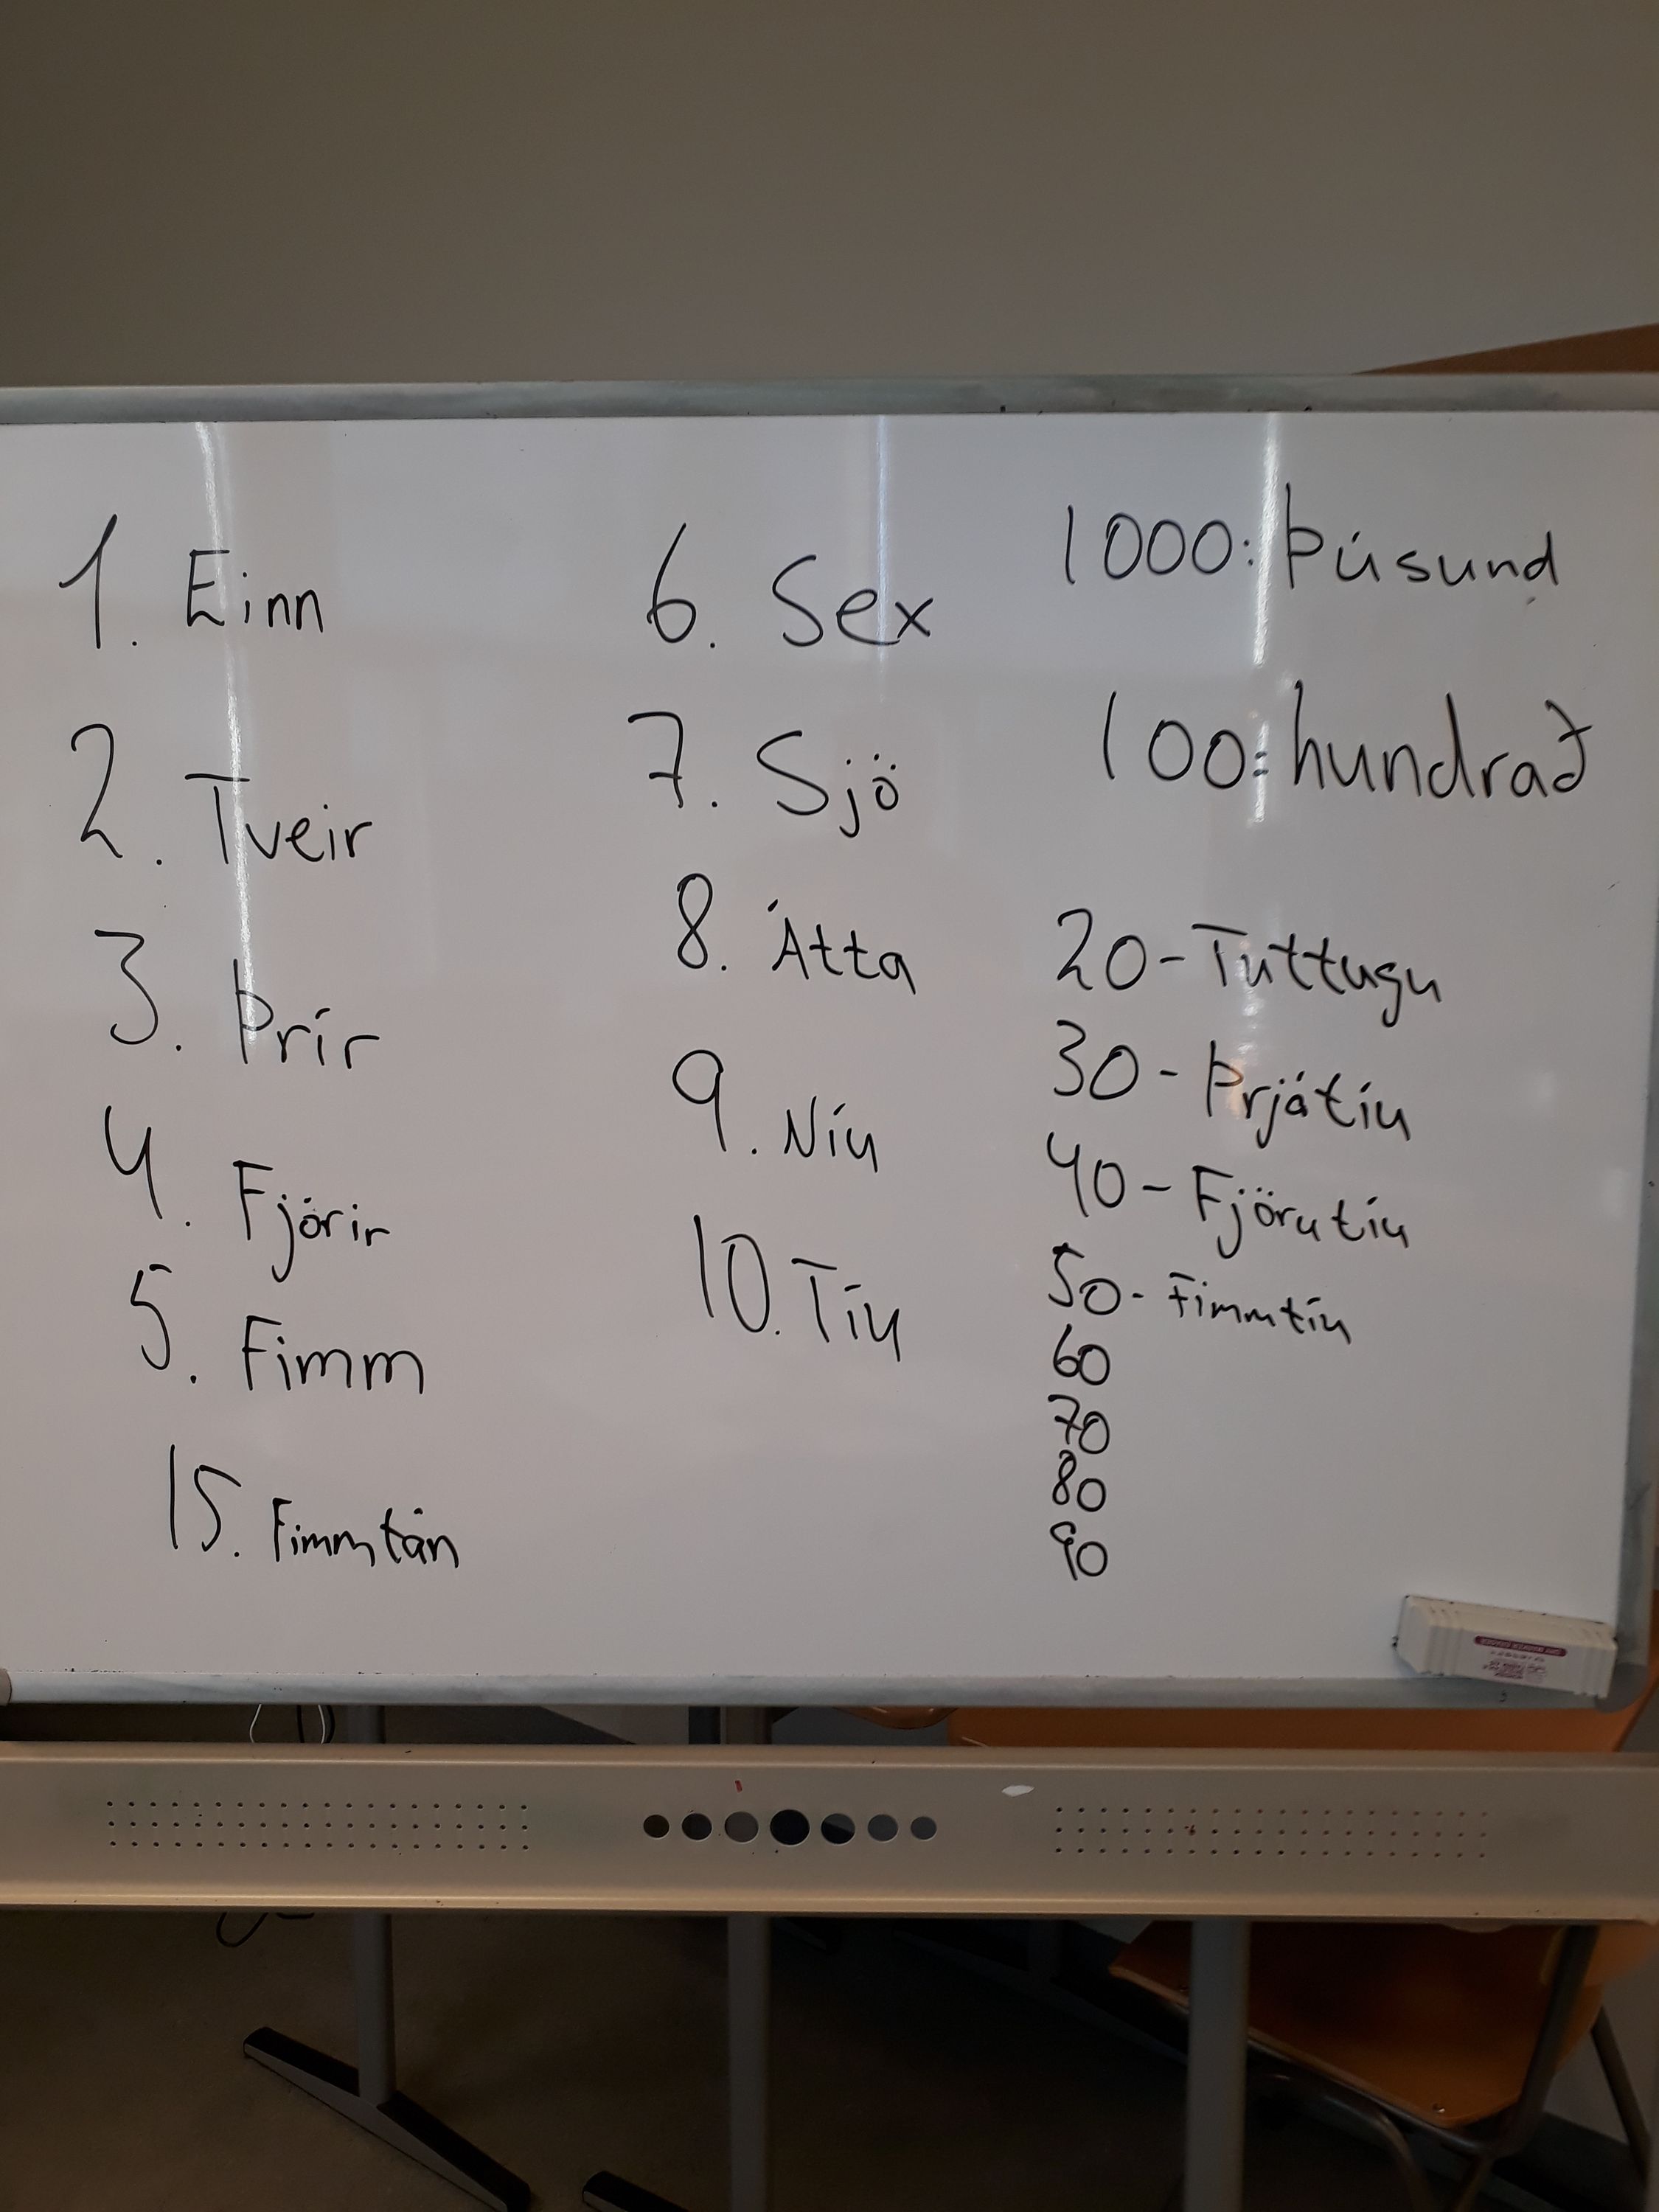 1. Einn
2. Tveir
3. Þrír
4. Fjórir
5. Fimm
15. Fimmtán
6. Sex
7. Sjö
8. Átta
9. Níu
10. Tíu
1000: Þúsund
100: hundrað
20 - Tuttugu
30 - Þrjátíu
40 - Fjörutíu
50 - Fimmtíu
60
70
80
90